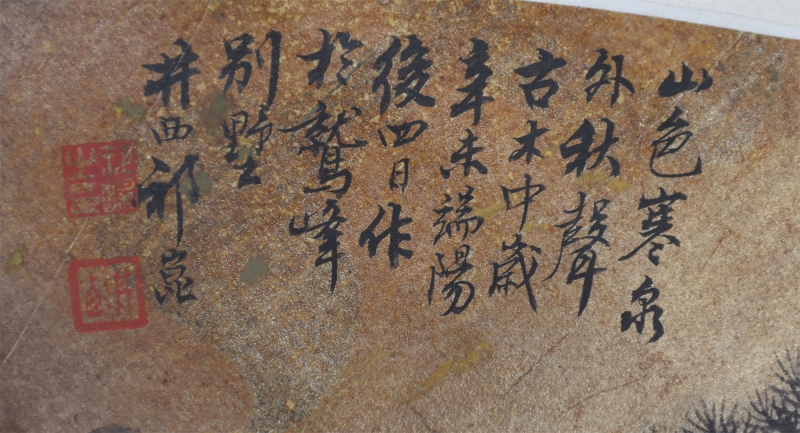 山色寒泉
外秋聲
古木中歲
辛未端陽
後四日作
於鷲峰
別墅
井西祁崑